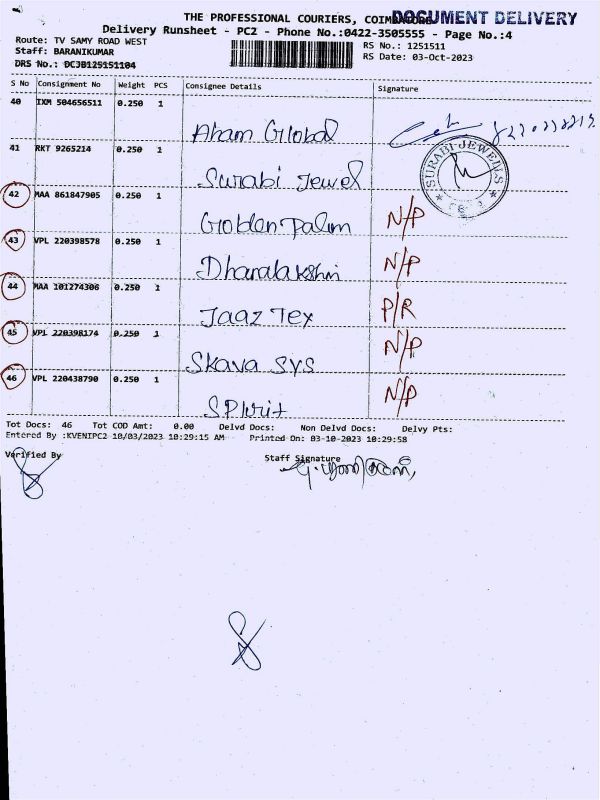 THE PROFESSIONAL COURIERS, COIMBATORE
DOCUMENT DELIVERY
Delivery Runsheet - PC2 - Phone No.:0422-3505555 - Page No.:4
Route: TV SAMY ROAD WEST
RS No.: 1251511
Staff: BARANIKUMAR
RS Date: 03-Oct-2023
DRS No.: DCJB125151104
S No Consignment No Weight PCS Consignee Details Signature
40 IXM 504656511 0.250 1
Aham Global
41 RKT 9265214 0.250 1
Surabi Jewel
SURABI JEWELLS
42 MAA 861847905 0.250 1
Golden Palm N/P
43 VPL 220398578 0.250 1
Dharalakshmi N/P
44 MAA 101274306 0.250 1
Jaaz Tex P/R
45 VPL 220398174 0.250 1
Skava sys N/P
46 VPL 220438790 0.250 1
SPIrit N/P
Tot Docs: 46 Tot COD Amt: 0.00 Delvd Docs: Non Delvd Docs: Delvy Pts:
Entered By :KVENIPC2 10/03/2023 10:29:15 AM Printed On: 03-10-2023 10:29:58
Verified By
Staff Signature